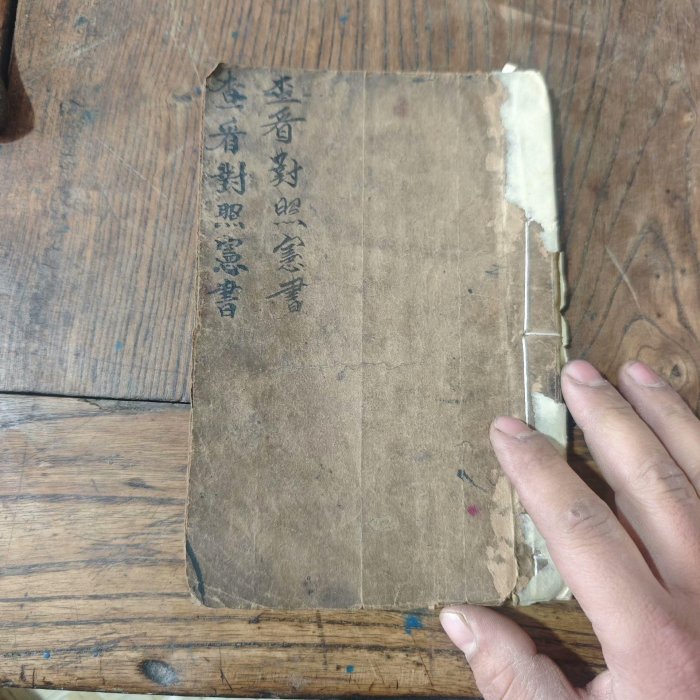 查看對照憲書
查看對照憲書